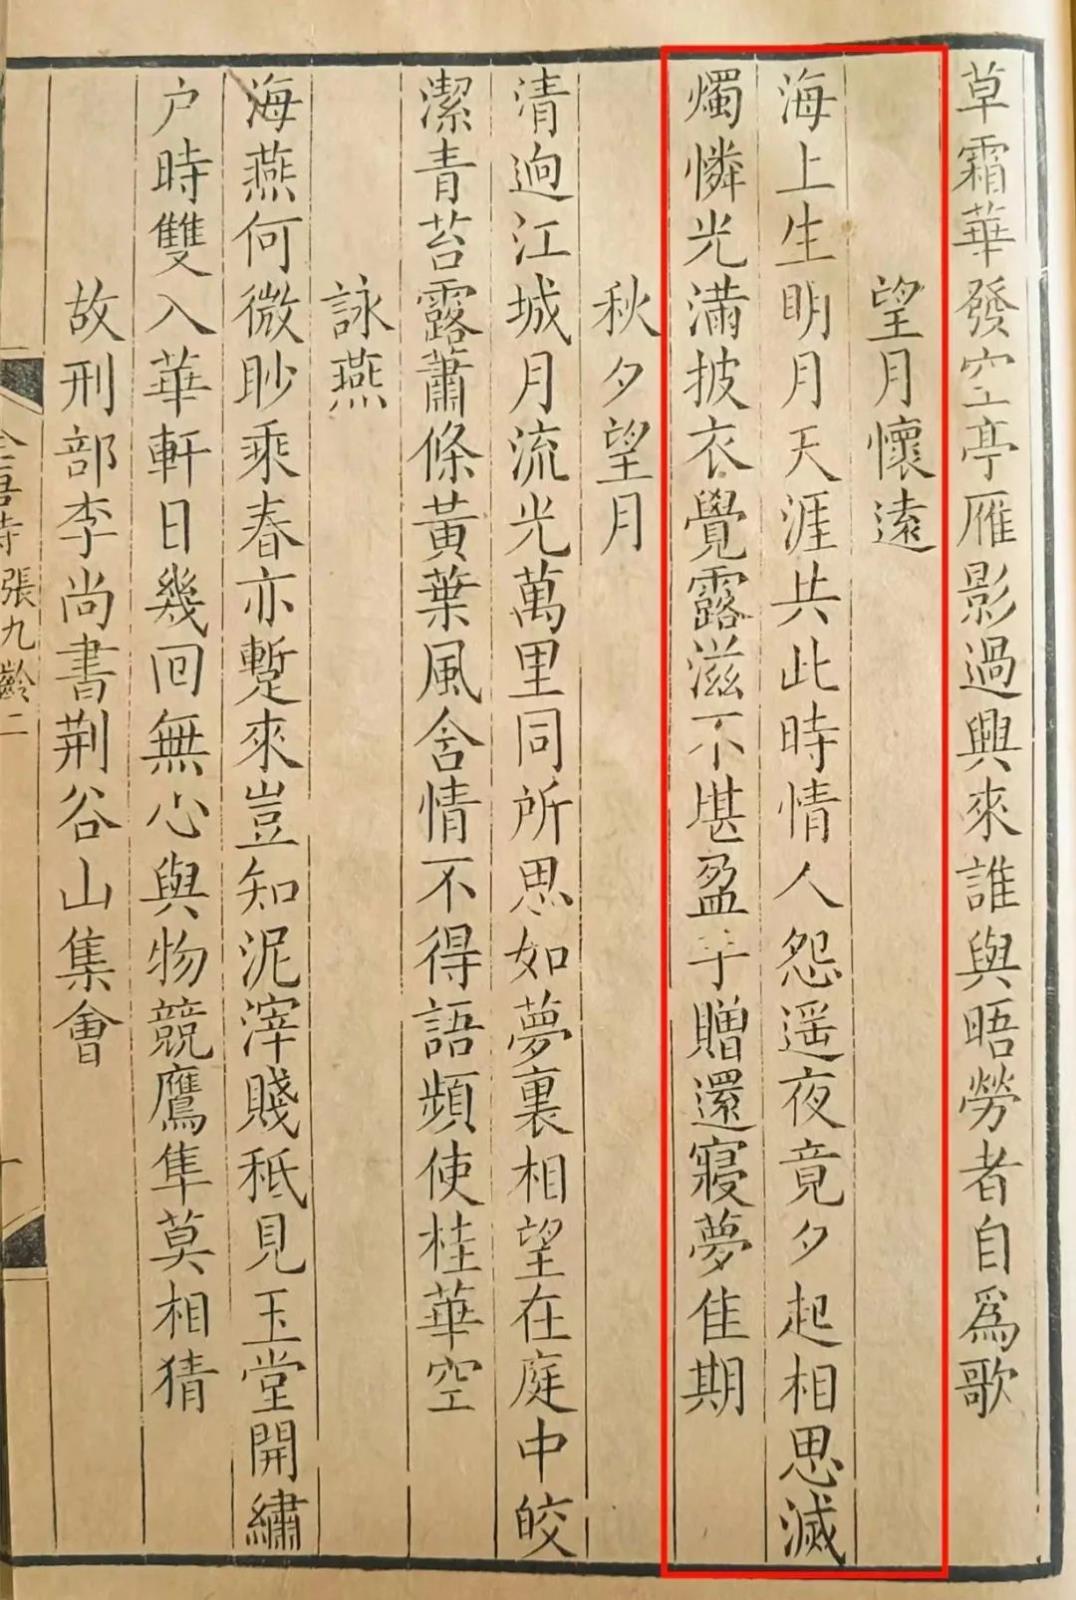 草霜華發空亭雁影過興來誰與晤勞者自爲歌
望月懷遠
海上生明月天涯共此時情人怨遥夜竟夕起相思滅
燭憐光滿披衣覺露滋不堪盈手贈還寢夢佳期
秋夕望月
清迥江城月流光萬里同所思如夢裏相望在庭中皎
潔青苔露蕭條黃葉風含情不得語頻使桂華空
詠燕
海燕何微眇乘春亦蹔來豈知泥滓賤秪見玉堂開繡
户時雙入華軒日幾回無心與物競鷹隼莫相猜
故刑部李尚書荆谷山集會
全唐詩 張九齡二